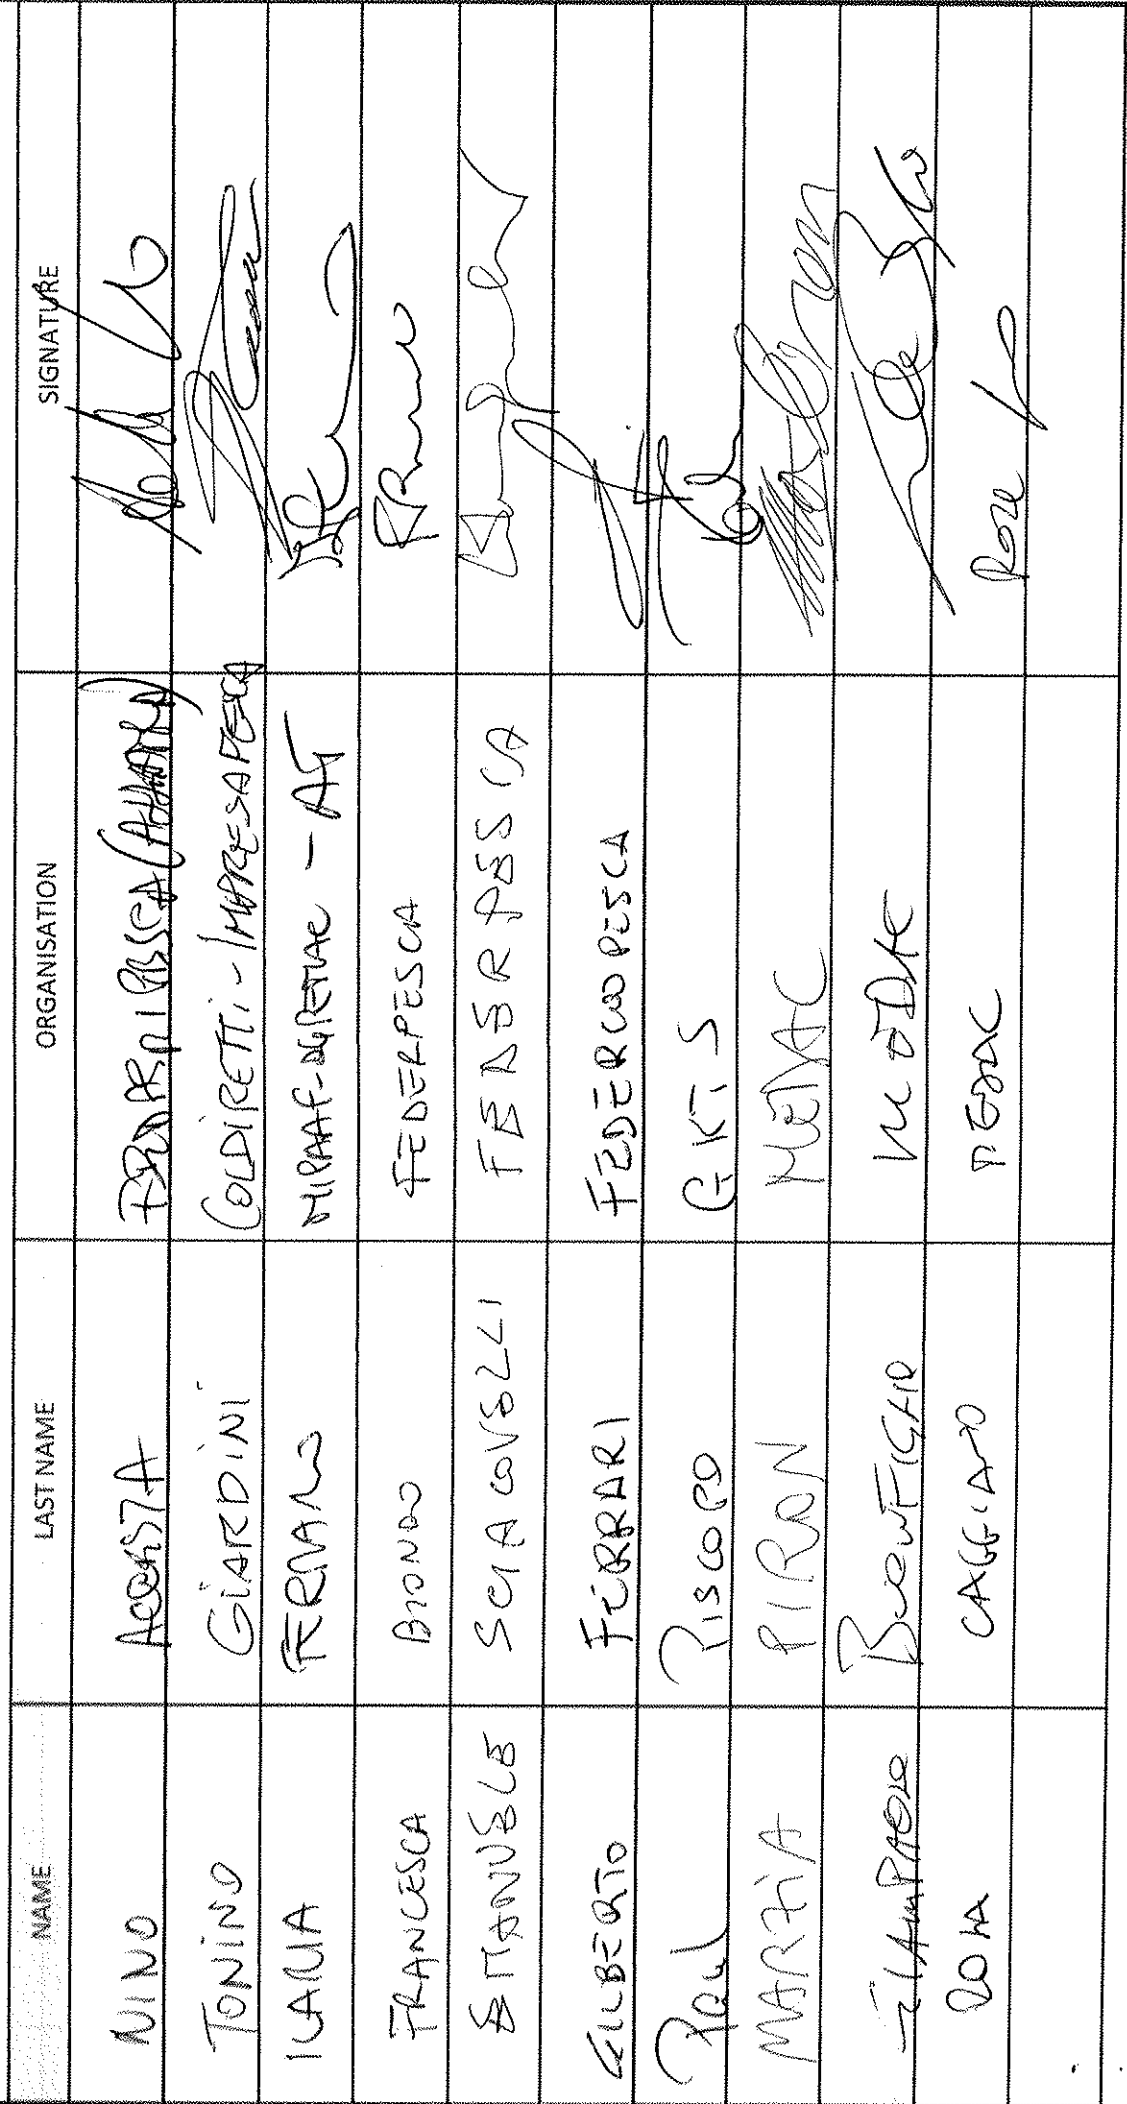 NAME LAST NAME ORGANISATION SIGNATURE
NINO ACOSTA
TONINO GIARDINI COLDIRETTI - IMPRESAPESCA
ILARIA FERRARO MIPAAF-DGPEMAC - AG
FRANCESCA BIONDO FEDERPESCA
EMANUELE SCIACOVELLI FEDERPESCA
GILBERTO FERRARI FEDERCOOPESCA
Paul PISCOPO GKTS
MARZIA PIRON MEDAC
GIAMPAOLO BUONFIGLIO MEDAC
ROSA CAGGIANO MEDAC Rosa